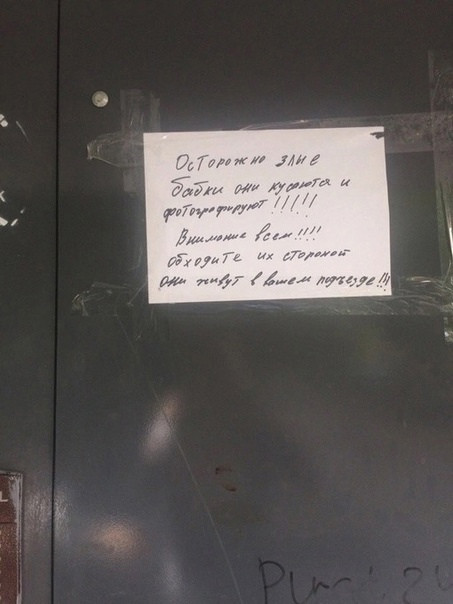 Осторожно злые
бабки они кусаются и
фотографируют!!!!!
Внимание всем!!!!
обходите их стороной
они живут в вашем подъезде!!!